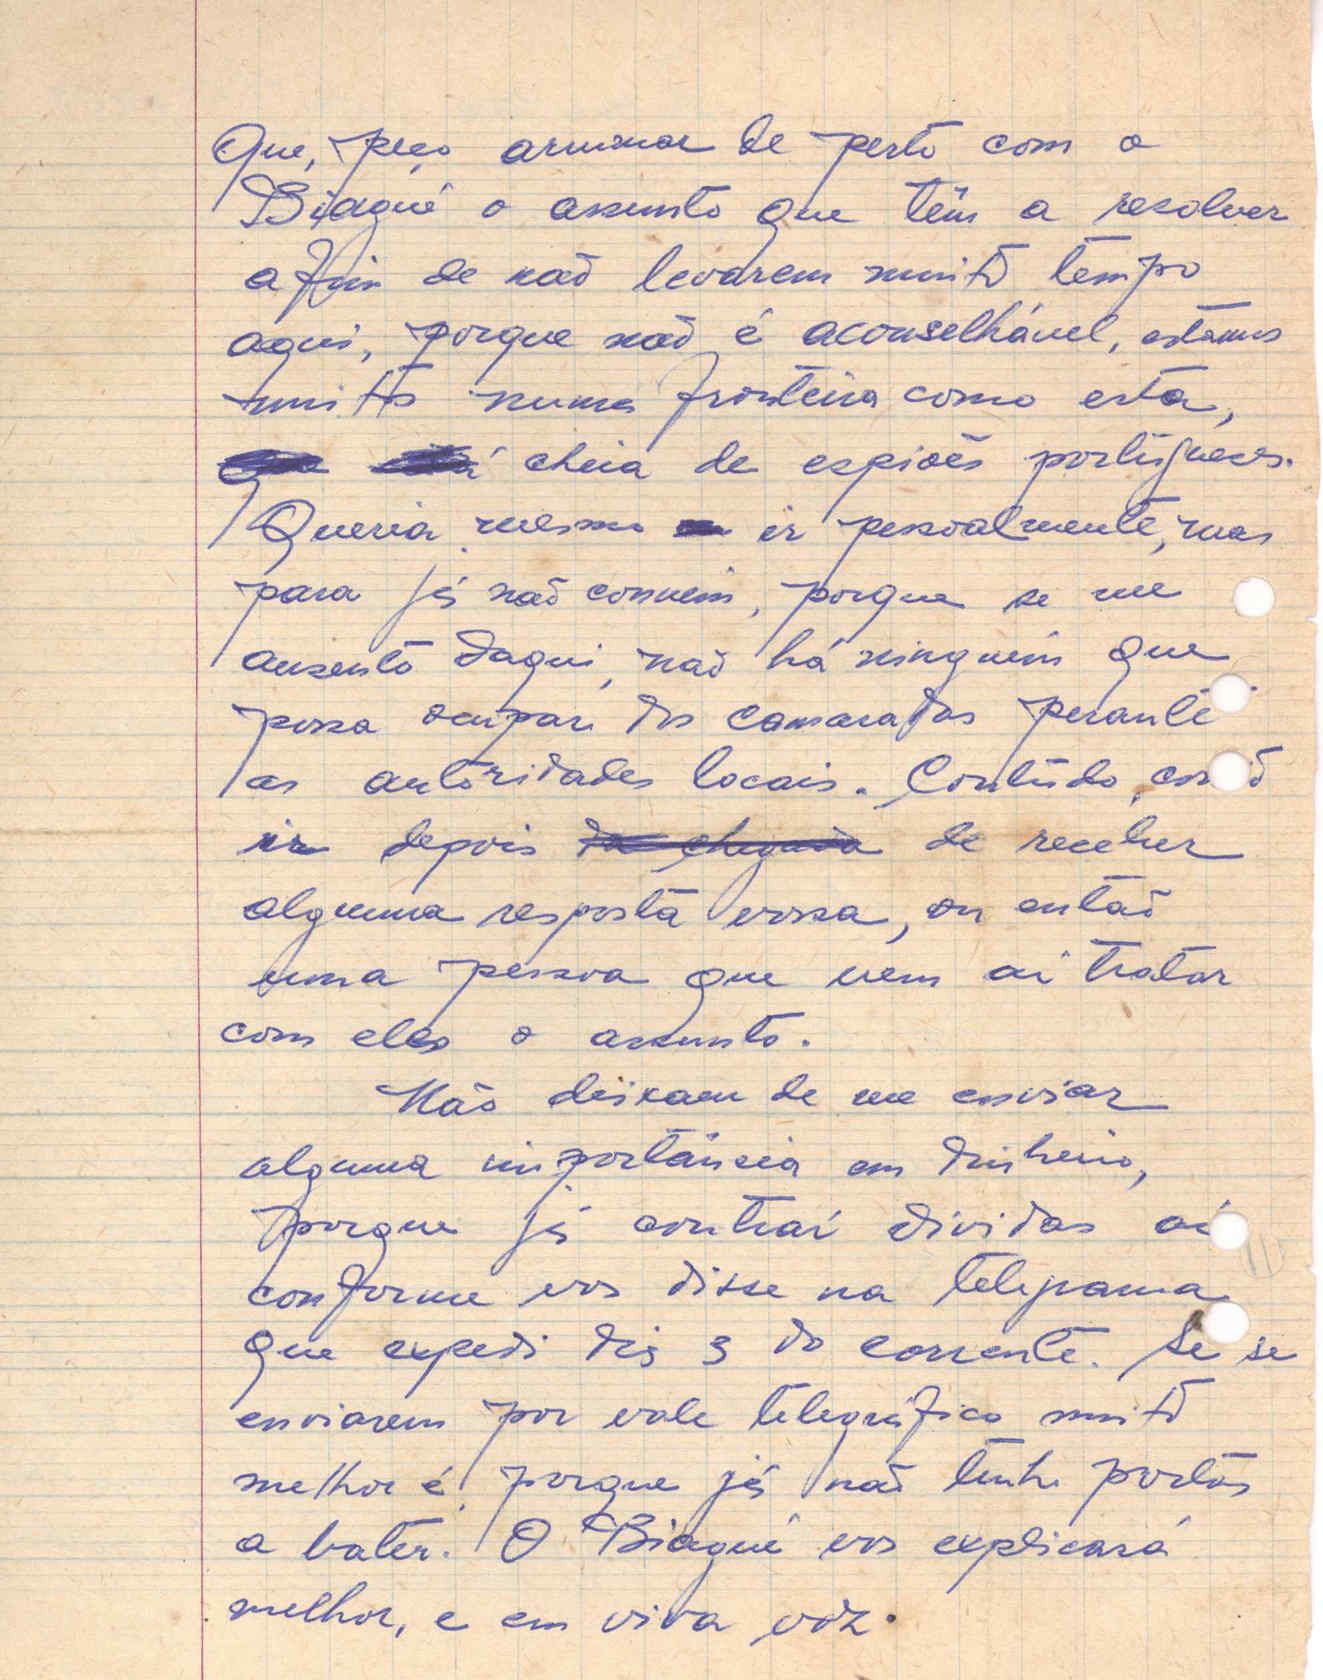 Que, peço arrumar de perto com o
Biagué o assunto que têm a resolver
a fim de não levarem muito tempo
aqui, porque não é aconselhável, estamos
muitos numa fronteira como esta,
cheia de espiões portugueses.
Queria mesmo ir pessoalmente, mas
para já não convem, porque se me
ausento daqui, não há ninguém que
possa ocupar dos camaradas perante
as autoridades locais. Contudo,
ir depois da chegada de receber
alguma resposta vossa, ou então
uma pessoa que vem aí tratar
com eles o assunto.
Não deixam de me enviar
alguma importância em dinheiro,
porque já contraí dividas aí
conforme vos disse na telegrama
que expedi dia 3 do corrente. Se se
enviarem por vale telegráfico muito
melhor é, porque já não tenho portas
a bater. O Biagué vos explicará
melhor, e em viva voz.